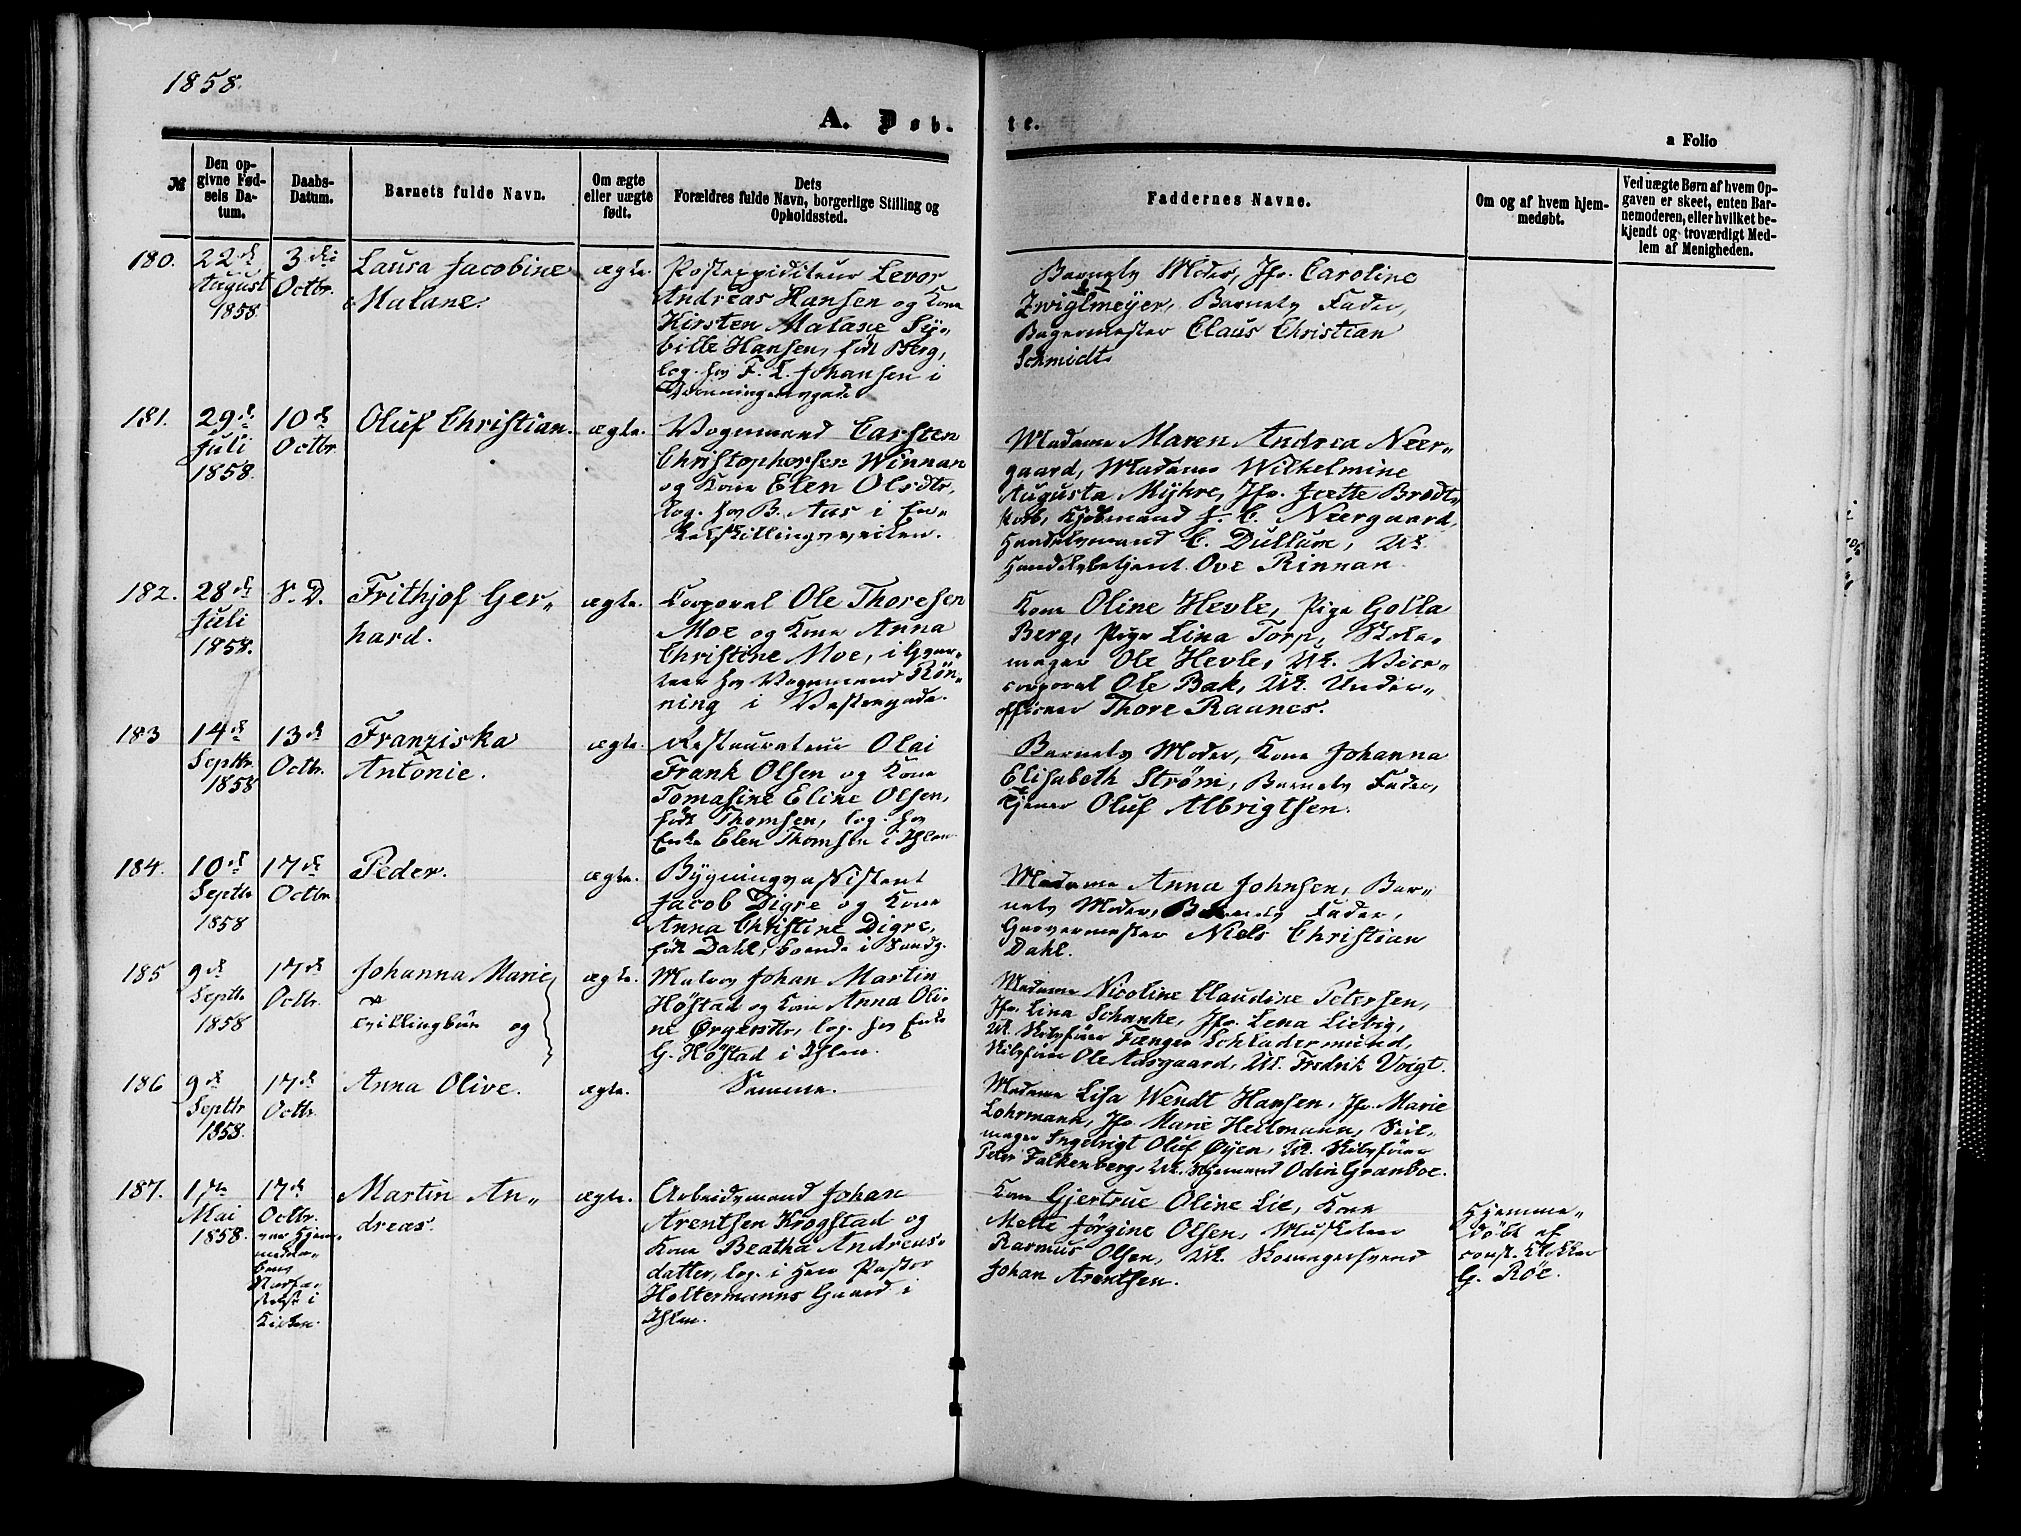 1858.
A. Døb-
te.
a Folio
№
Den op-
givne Fød-
sels Da-
tum.
Daabs-
Datum.
Barnets fulde Navn.
Om ægte
eller uægte
født.
Dets
Forældres fulde Navn, borgerlige Stilling og
Opholdssted.
Faddernes Navne.
Om og af hvem hjem-
medøbt.
Ved uægte Børn af hvem Op-
gaven er skeet, enten Bar-
nemoderen, eller hvilket be-
kjendt og troværdigt Med-
lem af Menigheden.
180.
22de
August
1858.
3die
Octbr.
Laura Jacobine
Malane.
ægte.
Postexpiditeur Levor
Andreas Hansen og Kone
Kirsten Malane Sy-
bille Hansen, født Berg,
log. hos F. L. Johansen i
Dronningensgade
Barnets Moder, Jfr. Caroline
Zwiglmeyer, Barnets Fader,
Bagermester Claus Christian
Schmidt.
181.
29de
Juli
1858.
10de
Octbr.
Oluf Christian.
ægte.
Vognmand Carsten
Christophersen Winnan
og Kone Elen Olsdtr,
log. hos B. Aas i
Madame Maren Andrea Neer-
gaard, Madame Wilhelmine
Augusta Myhre, Jfr. Jeette Brodt-
korb, Kjøbmand J. C. Neergaard,
Handelsmand C. Dullum, Uk.
Handelsbetjent Ove Rinnan.
182.
28de
Juli
1858.
S. D.
Frithjof Ger-
hard.
ægte.
Corporal Ole Thoresen
Moe og Kone Anna
Christine Moe, i Qvar-
teer hos Vognmand Røn-
ning i Vestergade.
Kone Oline Hevle, Pige Golla
Berg, Pige Lina Torp, Skoe-
mager Ole Hevle, Uk. Vice-
corporal Ole Bak, Uk. Under-
officeer Thore Raanes.
183
14de
Septbr.
1858
13de
Octbr.
Franziska
Antonie.
ægte.
Restaurateur Olai
Frank Olsen og Kone
Tomasine Eline Olsen,
født Thomsen, log. hos
Enke Elen Thomsen i Ihlen
Barnets Moder, Kone Johanna
Elisabeth Strøm, Barnets Fader,
Tjener Oluf Albrigtsen.
184.
10de
Septbr
1858
17de
Octbr.
Peder.
ægte.
Bygningsassistent
Jacob Digre og Kone
Anna Christine Digre,
født Dahl, boende i Sandg.
Madame Anna Johnsen, Bar-
nets Moder, Barnets Fader,
Garvermester Niels Christian
Dahl.
185
9de
Septbr
1858
17de
Octbr.
Johanna Marie
tvillingbørn og
ægte.
Maler Johan Martin
Høstad og Kone Anna Oli-
ne Ørgersdtr, log. hos Enke
G. Høstad i Ihlen.
Madame Nicoline Claudine Petersen,
Jfr. Lina Schanke, Jfr. Lena Liebig,
Uk. Skibsfører Fænger Schladermund,
Skibsfører Ole Aasgaard, Uk. Fredrik Voigt.
186
9de
Septbr
1858.
17de
Octbr.
Anna Olive.
ægte.
Samme.
Madame Lisa Wendt Hansen, Jfr. Marie
Lohrmann, Jfr. Marie Heilmann, Seil-
mager Ingebrigt Oluf Øyen, Uk. Skibsfører
Peter Falkenberg, Uk. Odin Grandoe.
187.
17de
Mai
1858.
17de
Octbr.
var Hjem-
medaa-
bens
Stadfæ-
stelse i
Kirken.
Martin An-
dreas.
ægte.
Arbeidsmand Johan
Arentsen Krogstad og
Kone Beatha Andreas-
datter, log. i Herr Pastor
Holtermanns Gaard i
Ihlen.
Kone Gjertrue Oline Lie, Kone
Mette Jörgine Olsen, Musketeer
Rasmus Olsen, Uk. Skomagersvend
Johan Arentsen.
Hjemme-
døbt af
const. Klokker
G. Röe.